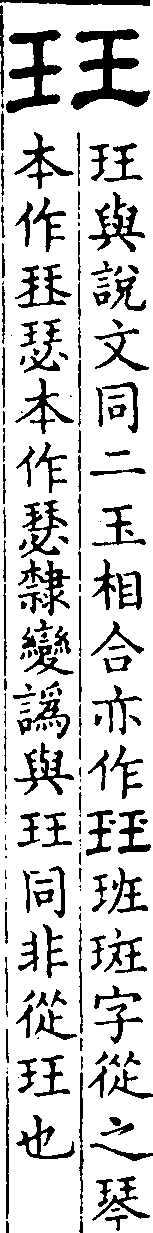 玨
玨與說文同二玉相合亦作珏班斑字從之琴
本作珡瑟本作隸變譌與玨同非從玨也